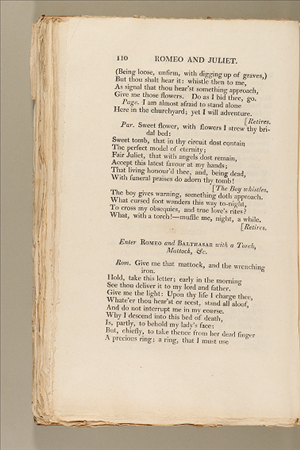 110 ROMEO AND JULIET.
(Being loose, unfirm, with digging up of graves,)
But thou shalt hear it: whistle then to me,
As signal that thou hear'st something approach,
Give me those flowers. Do as I bid thee, go.
Page. I am almost afraid to stand alone
Here in the churchyard; yet I will adventure.
[Retires.
Par. Sweet flower, with flowers I strew thy bri-
dal bed:
Sweet tomb, that in thy circuit dost contain
The perfect model of eternity;
Fair Juliet, that with angels dost remain,
Accept this latest favour at my hands;
That living honour'd thee, and, being dead,
With funeral praises do adorn thy tomb!
[The Boy whistles.
The boy gives warning, something doth approach.
What cursed foot wanders this way to-night,
To cross my obsequies, and true love's rites?
What, with a torch!—muffle me, night, a while.
[Retires.
Enter ROMEO and BALTHASAR with a Torch,
Mattock, &c.
Rom. Give me that mattock, and the wrenching
iron.
Hold, take this letter; early in the morning
See thou deliver it to my lord and father.
Give me the light: Upon thy life I charge thee,
Whate'er thou hear'st or seest, stand all aloof,
And do not interrupt me in my course.
Why I descend into this bed of death,
Is, partly, to behold my lady's face:
But, chiefly, to take thence from her dead finger
A precious ring; a ring, that I must use